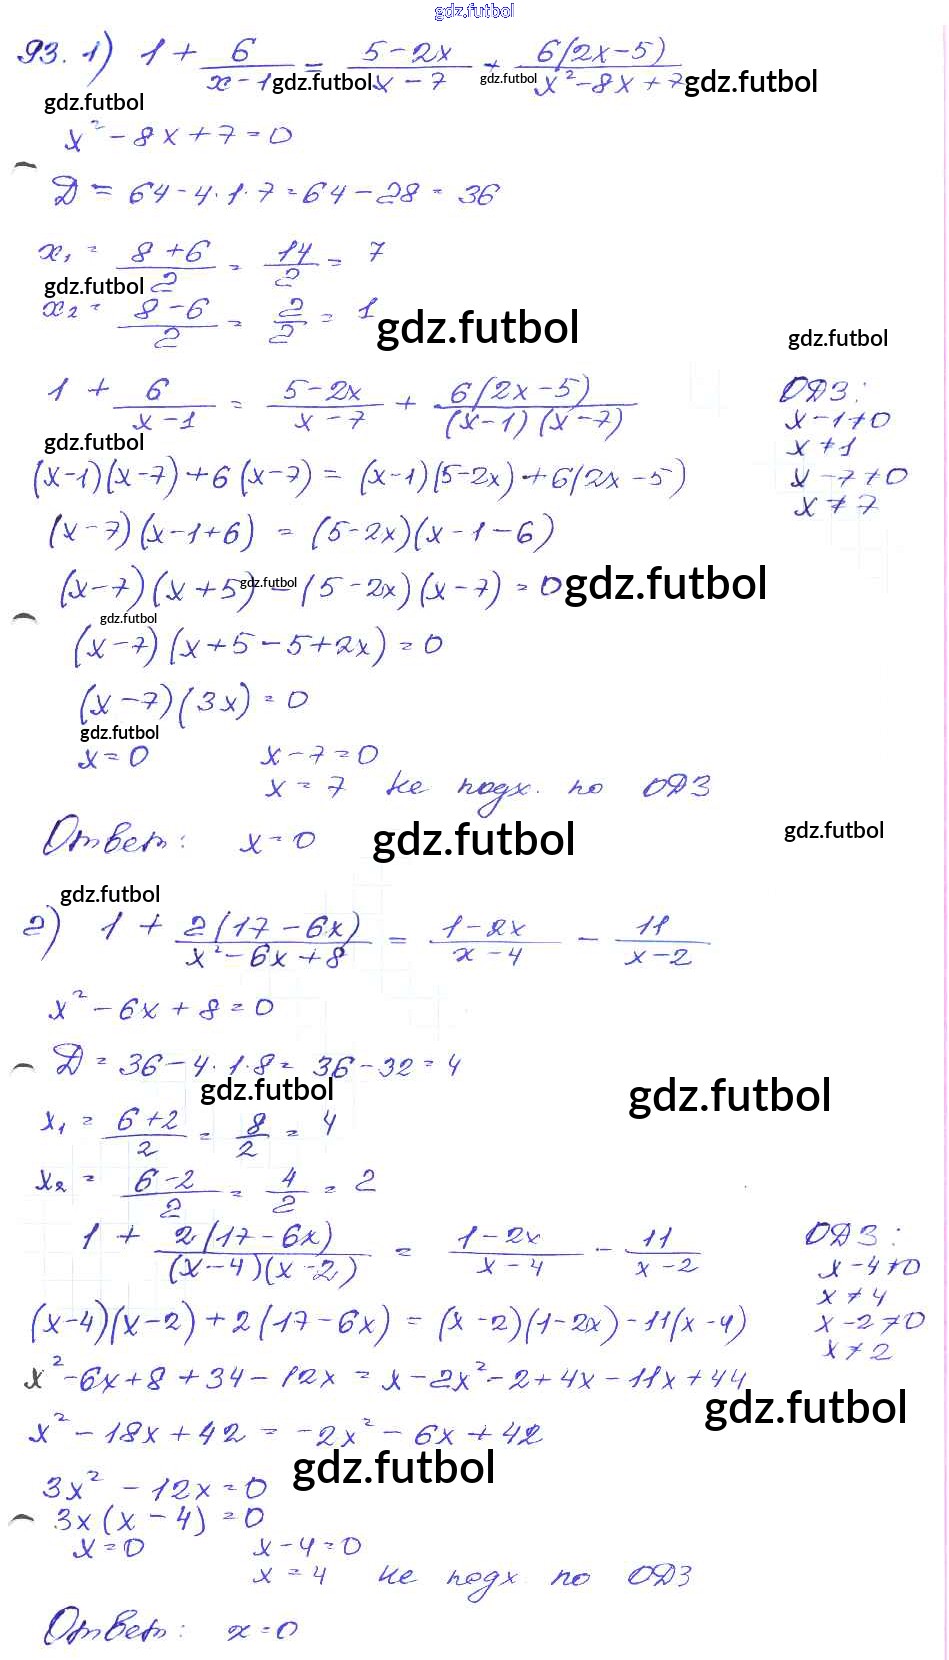 gdz.futbol
93. 1) 1 + 6/(x-1) = (5-2x)/(x-7) + 6(2x-5)/(x²-8x+7)
gdz.futbol gdz.futbol gdz.futbol
gdz.futbol
x² - 8x + 7 = 0
Д = 64 - 4·1·7 = 64 - 28 = 36
x₁ = (8+6)/2 = 14/2 = 7
gdz.futbol
x₂ = (8-6)/2 = 2/2 = 1
gdz.futbol
gdz.futbol
1 + 6/(x-1) = (5-2x)/(x-7) + 6(2x-5)/((x-1)(x-7)) ОДЗ:
x-1≠0
gdz.futbol x≠1
(x-1)(x-7)+6(x-7) = (x-1)(5-2x)+6(2x-5) x-7≠0
x≠7
(x-7)(x-1+6) = (5-2x)(x-1-6)
(x-7)(x+5)-(5-2x)(x-7)=0
gdz.futbol gdz.futbol
gdz.futbol
(x-7)(x+5-5+2x)=0
(x-7)(3x)=0
gdz.futbol
x=0 x-7=0
x=7 не подх. по ОДЗ
Ответ: x=0
gdz.futbol gdz.futbol
gdz.futbol
2) 1 + 2(17-6x)/(x²-6x+8) = (1-2x)/(x-4) - 11/(x-2)
x² - 6x + 8 = 0
Д = 36 - 4·1·8 = 36 - 32 = 4
gdz.futbol gdz.futbol
x₁ = (6+2)/2 = 8/2 = 4
x₂ = (6-2)/2 = 4/2 = 2
1 + 2(17-6x)/((x-4)(x-2)) = (1-2x)/(x-4) - 11/(x-2) ОДЗ:
x-4≠0
x≠4
(x-4)(x-2)+2(17-6x) = (x-2)(1-2x)-11(x-4) x-2≠0
x≠2
x²-6x+8+34-12x = x-2x²-2+4x-11x+44
gdz.futbol
x²-18x+42 = -2x²-6x+42
gdz.futbol
3x² - 12x = 0
3x(x-4) = 0
x=0 x-4=0
x=4 не подх по ОДЗ
Ответ: x=0